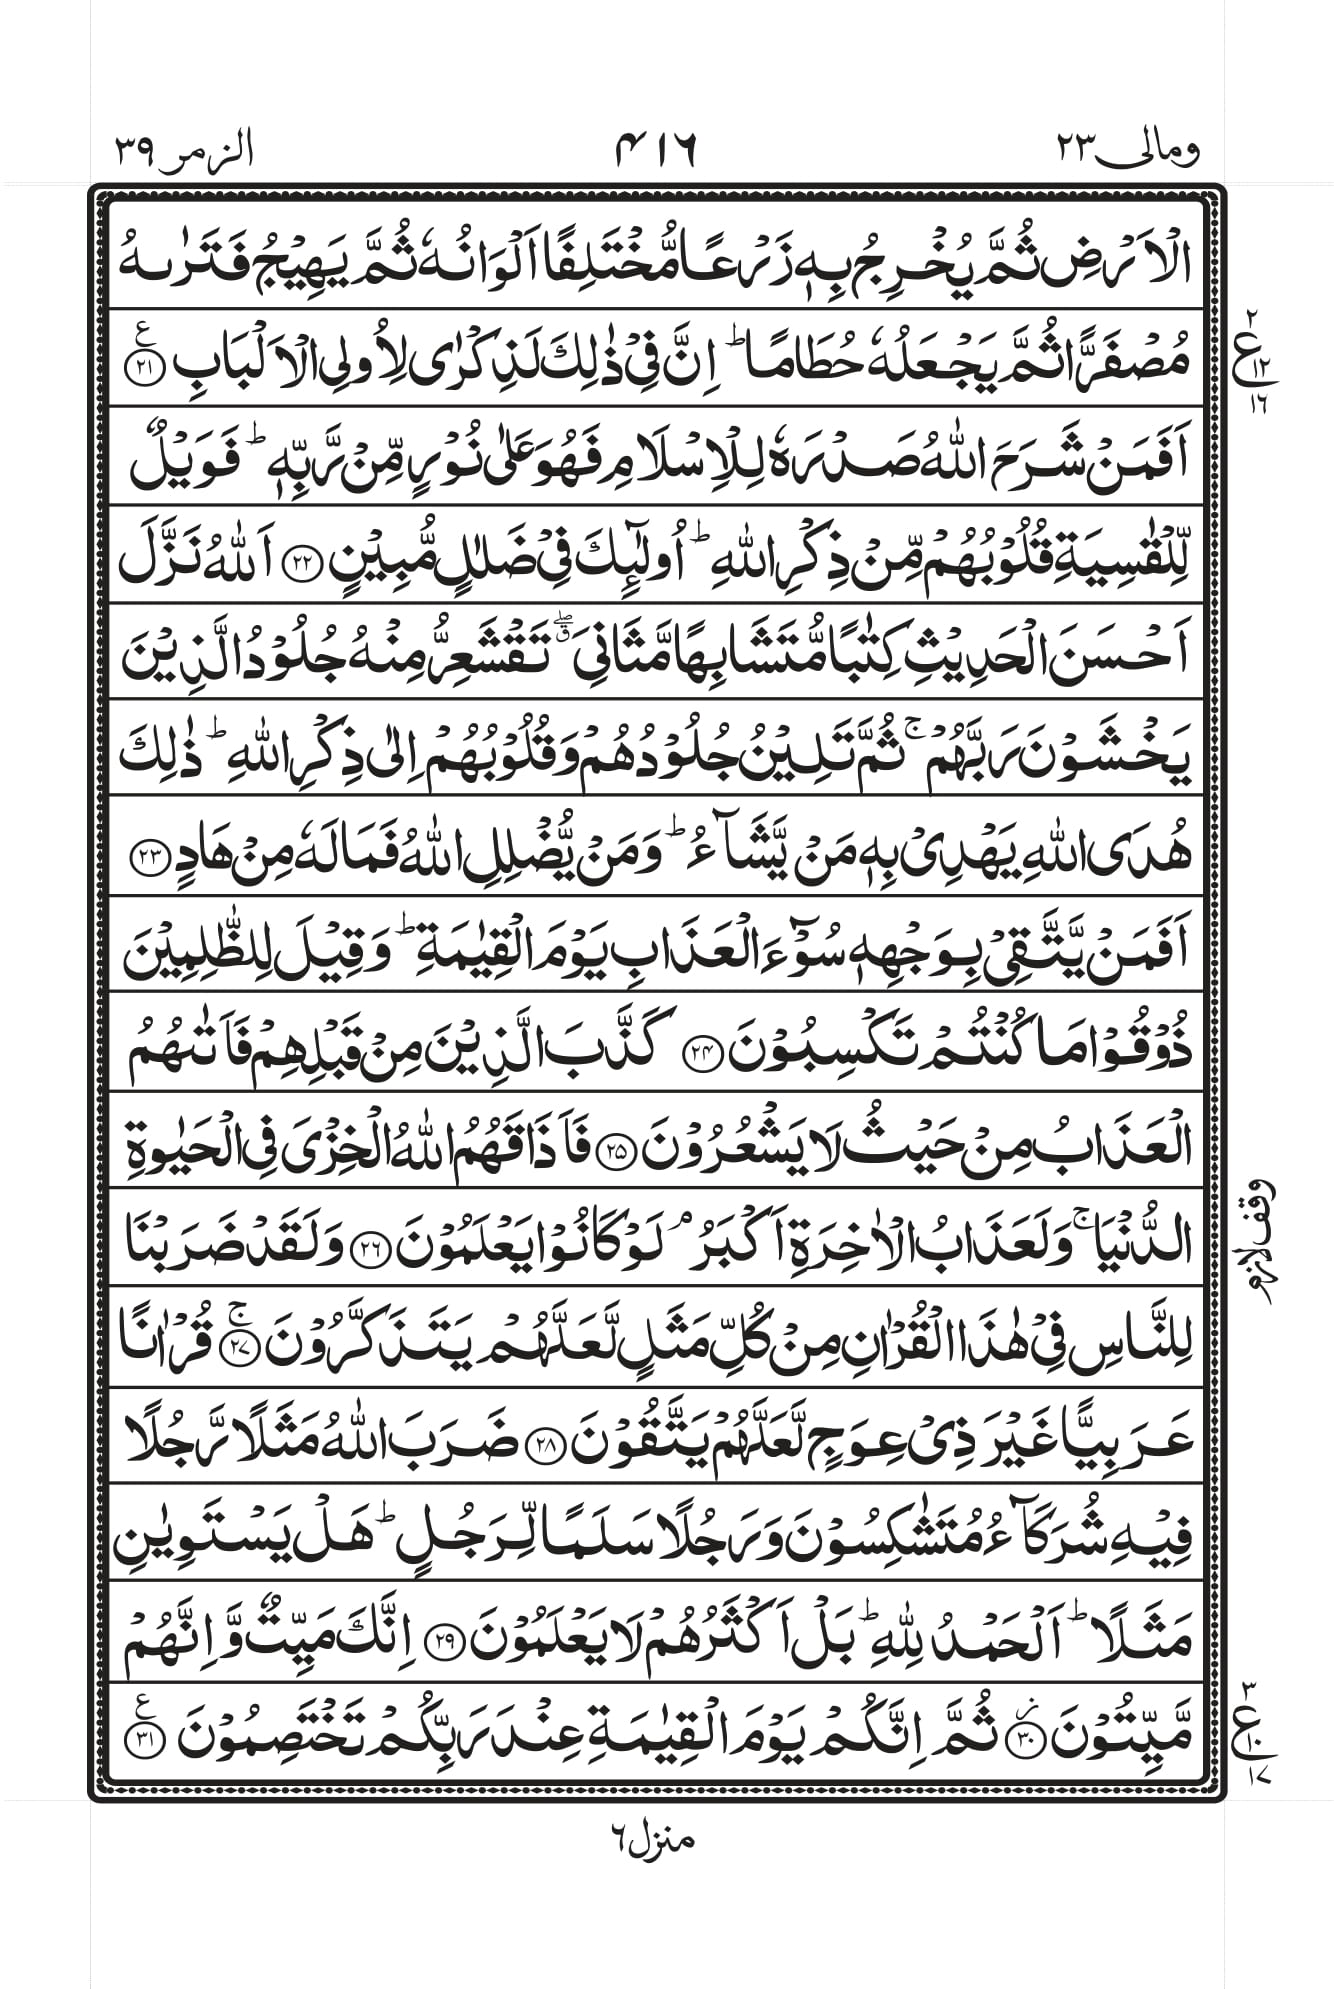 ومالی ٢٣
٤١٦
الزمر ٣٩
الْاَرْضِ ثُمَّ يُخْرِجُ بِهٖ زَرْعًا مُّخْتَلِفًا اَلْوَانُهٗ ثُمَّ يَهِيْجُ فَتَرٰىهُ
مُصْفَرًّا ثُمَّ يَجْعَلُهٗ حُطَامًا ؕ اِنَّ فِيْ ذٰلِكَ لَذِكْرٰى لِاُولِى الْاَلْبَابِ ﴿٢١﴾ ع
٢
ع ١٢
١٦
اَفَمَنْ شَرَحَ اللّٰهُ صَدْرَهٗ لِلْاِسْلَامِ فَهُوَ عَلٰى نُوْرٍ مِّنْ رَّبِّهٖ ؕ فَوَيْلٌ
لِّلْقٰسِيَةِ قُلُوْبُهُمْ مِّنْ ذِكْرِ اللّٰهِ ؕ اُولٰٓئِكَ فِيْ ضَلٰلٍ مُّبِيْنٍ ﴿٢٢﴾ اَللّٰهُ نَزَّلَ
اَحْسَنَ الْحَدِيْثِ كِتٰبًا مُّتَشَابِهًا مَّثَانِيَ ۖق تَقْشَعِرُّ مِنْهُ جُلُوْدُ الَّذِيْنَ
يَخْشَوْنَ رَبَّهُمْ ۚ ثُمَّ تَلِيْنُ جُلُوْدُهُمْ وَقُلُوْبُهُمْ اِلٰى ذِكْرِ اللّٰهِ ؕ ذٰلِكَ
هُدَى اللّٰهِ يَهْدِيْ بِهٖ مَنْ يَّشَآءُ ؕ وَمَنْ يُّضْلِلِ اللّٰهُ فَمَا لَهٗ مِنْ هَادٍ ﴿٢٣﴾
اَفَمَنْ يَّتَّقِيْ بِوَجْهِهٖ سُوْٓءَ الْعَذَابِ يَوْمَ الْقِيٰمَةِ ؕ وَقِيْلَ لِلظّٰلِمِيْنَ
ذُوْقُوْا مَا كُنْتُمْ تَكْسِبُوْنَ ﴿٢٤﴾ كَذَّبَ الَّذِيْنَ مِنْ قَبْلِهِمْ فَاَتٰىهُمُ
الْعَذَابُ مِنْ حَيْثُ لَا يَشْعُرُوْنَ ﴿٢٥﴾ فَاَذَاقَهُمُ اللّٰهُ الْخِزْيَ فِى الْحَيٰوةِ
الدُّنْيَا ۚ وَلَعَذَابُ الْاٰخِرَةِ اَكْبَرُ ۘ لَوْ كَانُوْا يَعْلَمُوْنَ ﴿٢٦﴾ وَلَقَدْ ضَرَبْنَا
وقف لازم
لِلنَّاسِ فِيْ هٰذَا الْقُرْاٰنِ مِنْ كُلِّ مَثَلٍ لَّعَلَّهُمْ يَتَذَكَّرُوْنَ ﴿٢٧﴾ ۚ قُرْاٰنًا
عَرَبِيًّا غَيْرَ ذِيْ عِوَجٍ لَّعَلَّهُمْ يَتَّقُوْنَ ﴿٢٨﴾ ضَرَبَ اللّٰهُ مَثَلًا رَّجُلًا
فِيْهِ شُرَكَآءُ مُتَشٰكِسُوْنَ وَرَجُلًا سَلَمًا لِّرَجُلٍ ؕ هَلْ يَسْتَوِيٰنِ
مَثَلًا ؕ اَلْحَمْدُ لِلّٰهِ ؕ بَلْ اَكْثَرُهُمْ لَا يَعْلَمُوْنَ ﴿٢٩﴾ اِنَّكَ مَيِّتٌ وَّاِنَّهُمْ
مَّيِّتُوْنَ ﴿٣٠﴾ ز ثُمَّ اِنَّكُمْ يَوْمَ الْقِيٰمَةِ عِنْدَ رَبِّكُمْ تَخْتَصِمُوْنَ ﴿٣١﴾ ع
٣
ع ١٠
١٧
منزل ٦